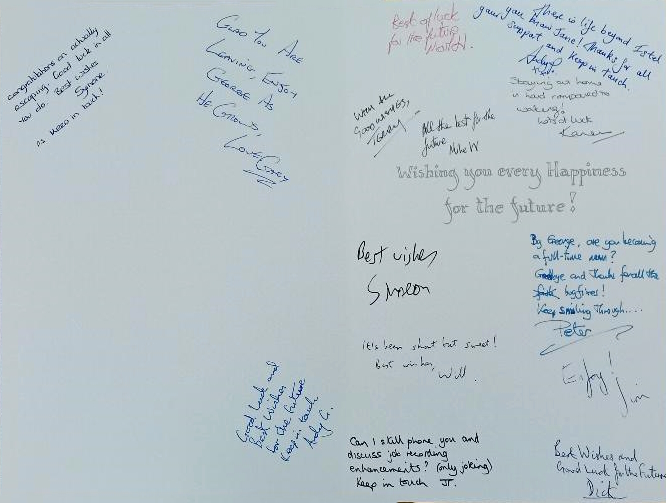 congratulations on actually
escaping. Good luck in all
you do. Best wishes
Symone
PS Keep in touch!
GLAD YOU ARE
LEAVING, ENJOY
GEORGE AS
HE GROWS,
LOVE
Good Luck and
Best Wishes
for the Future
Keep in touch
Andy G.
Best of luck
for the future
There is life beyond
you know Jane! Thanks for all
your support and Keep in touch.
Andy
With the
GOOD WISHES,
TERRY
All the best for the
future
Mike W
Staying at home
is hard compared to
working!
Good luck
Karen
Wishing you every Happiness
for the future!
Best wishes
Simeon
By George, are you becoming
a full-time mum?
Goodbye and thanks for all the
bugfixes!
Keep smiling through....
Peter
it's been short but sweet!
Best wishes,
Will
Enjoy!
Jim
Can I still phone you and
discuss job recording
enhancements? (only joking)
Keep in touch JT.
Best Wishes and
Good Luck for the Future
Dick